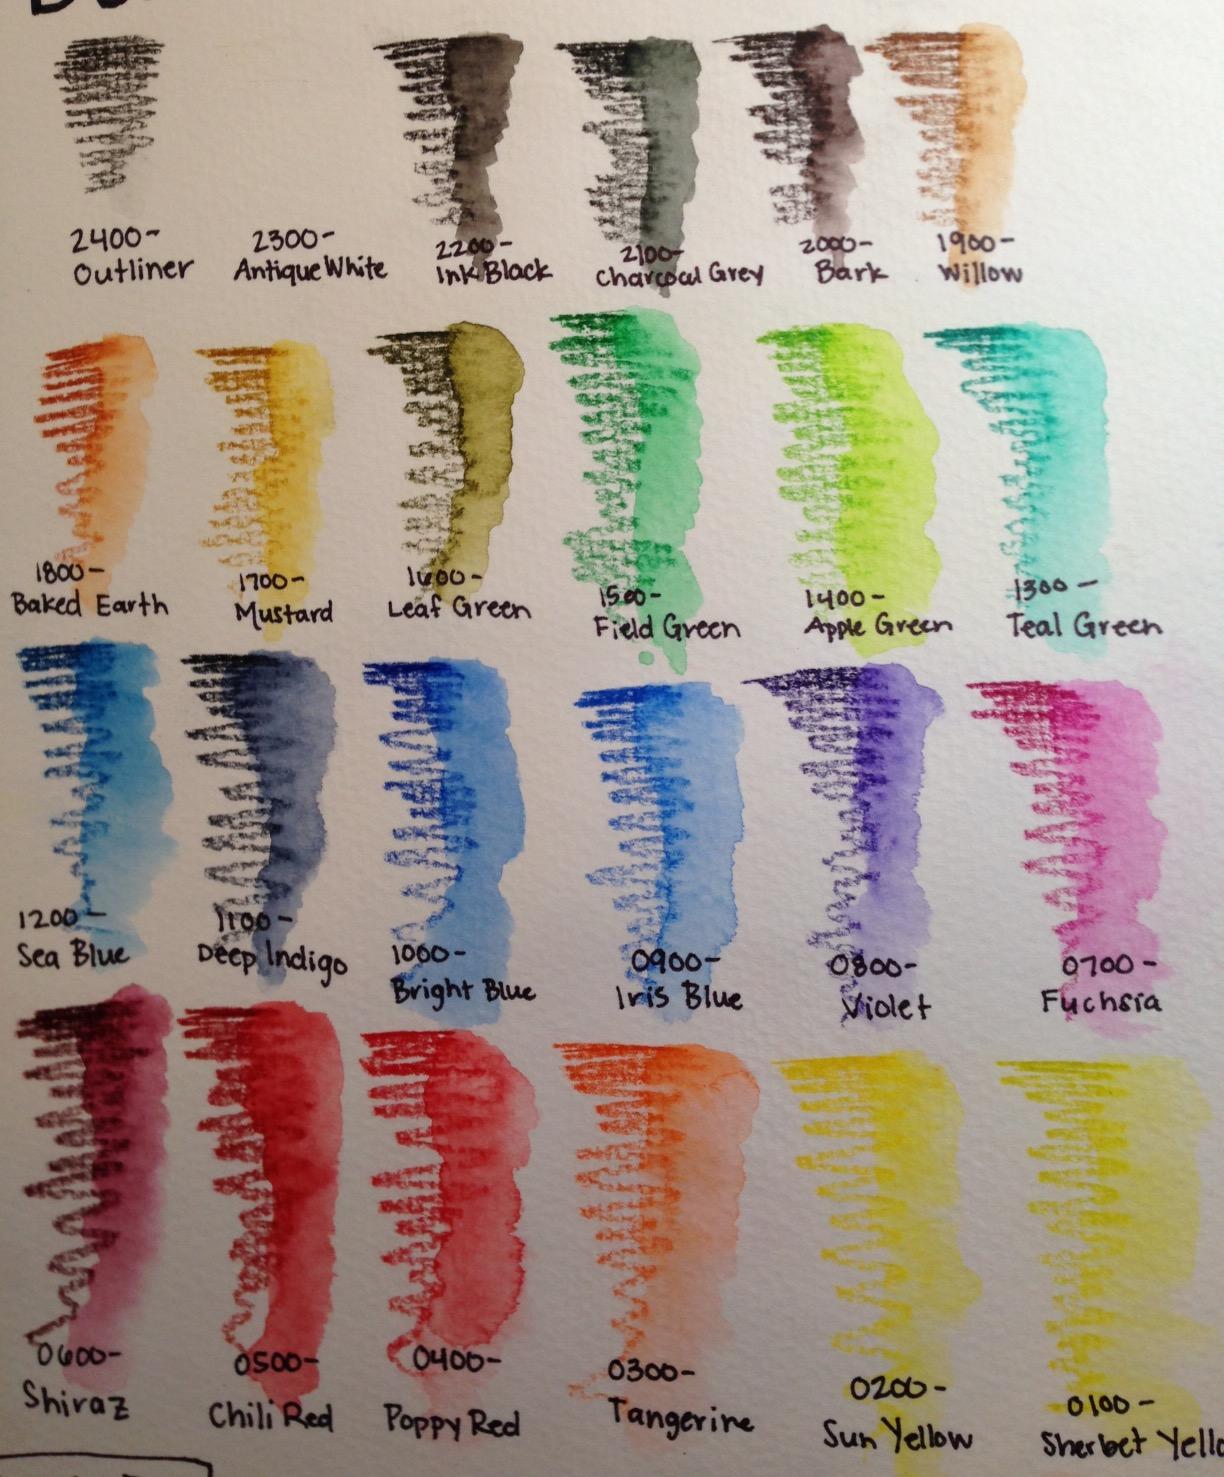 2400-
Outliner
2300-
Antique White
2200-
Ink Black
2100-
Charcoal Grey
2000-
Bark
1900-
Willow
1800-
Baked Earth
1700-
Mustard
1600-
Leaf Green
1500-
Field Green
1400-
Apple Green
1300-
Teal Green
1200-
Sea Blue
1100-
Deep Indigo
1000-
Bright Blue
0900-
Iris Blue
0800-
Violet
0700-
Fuchsia
0600-
Shiraz
0500-
Chili Red
0400-
Poppy Red
0300-
Tangerine
0200-
Sun Yellow
0100-
Sherbet Yello